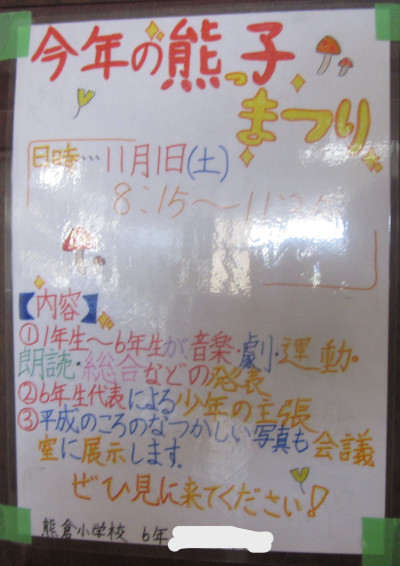 今年の熊っ子
まつり
日時…11月1日(土)
8:15〜11:25
【内容】
①1年生〜6年生が、音楽・劇・運動・
朗読・総合などの発表
②6年生代表による少年の主張
③平成のころのなつかしい写真も会議
室に展示します。
ぜひ見に来てください!
熊倉小学校 6年